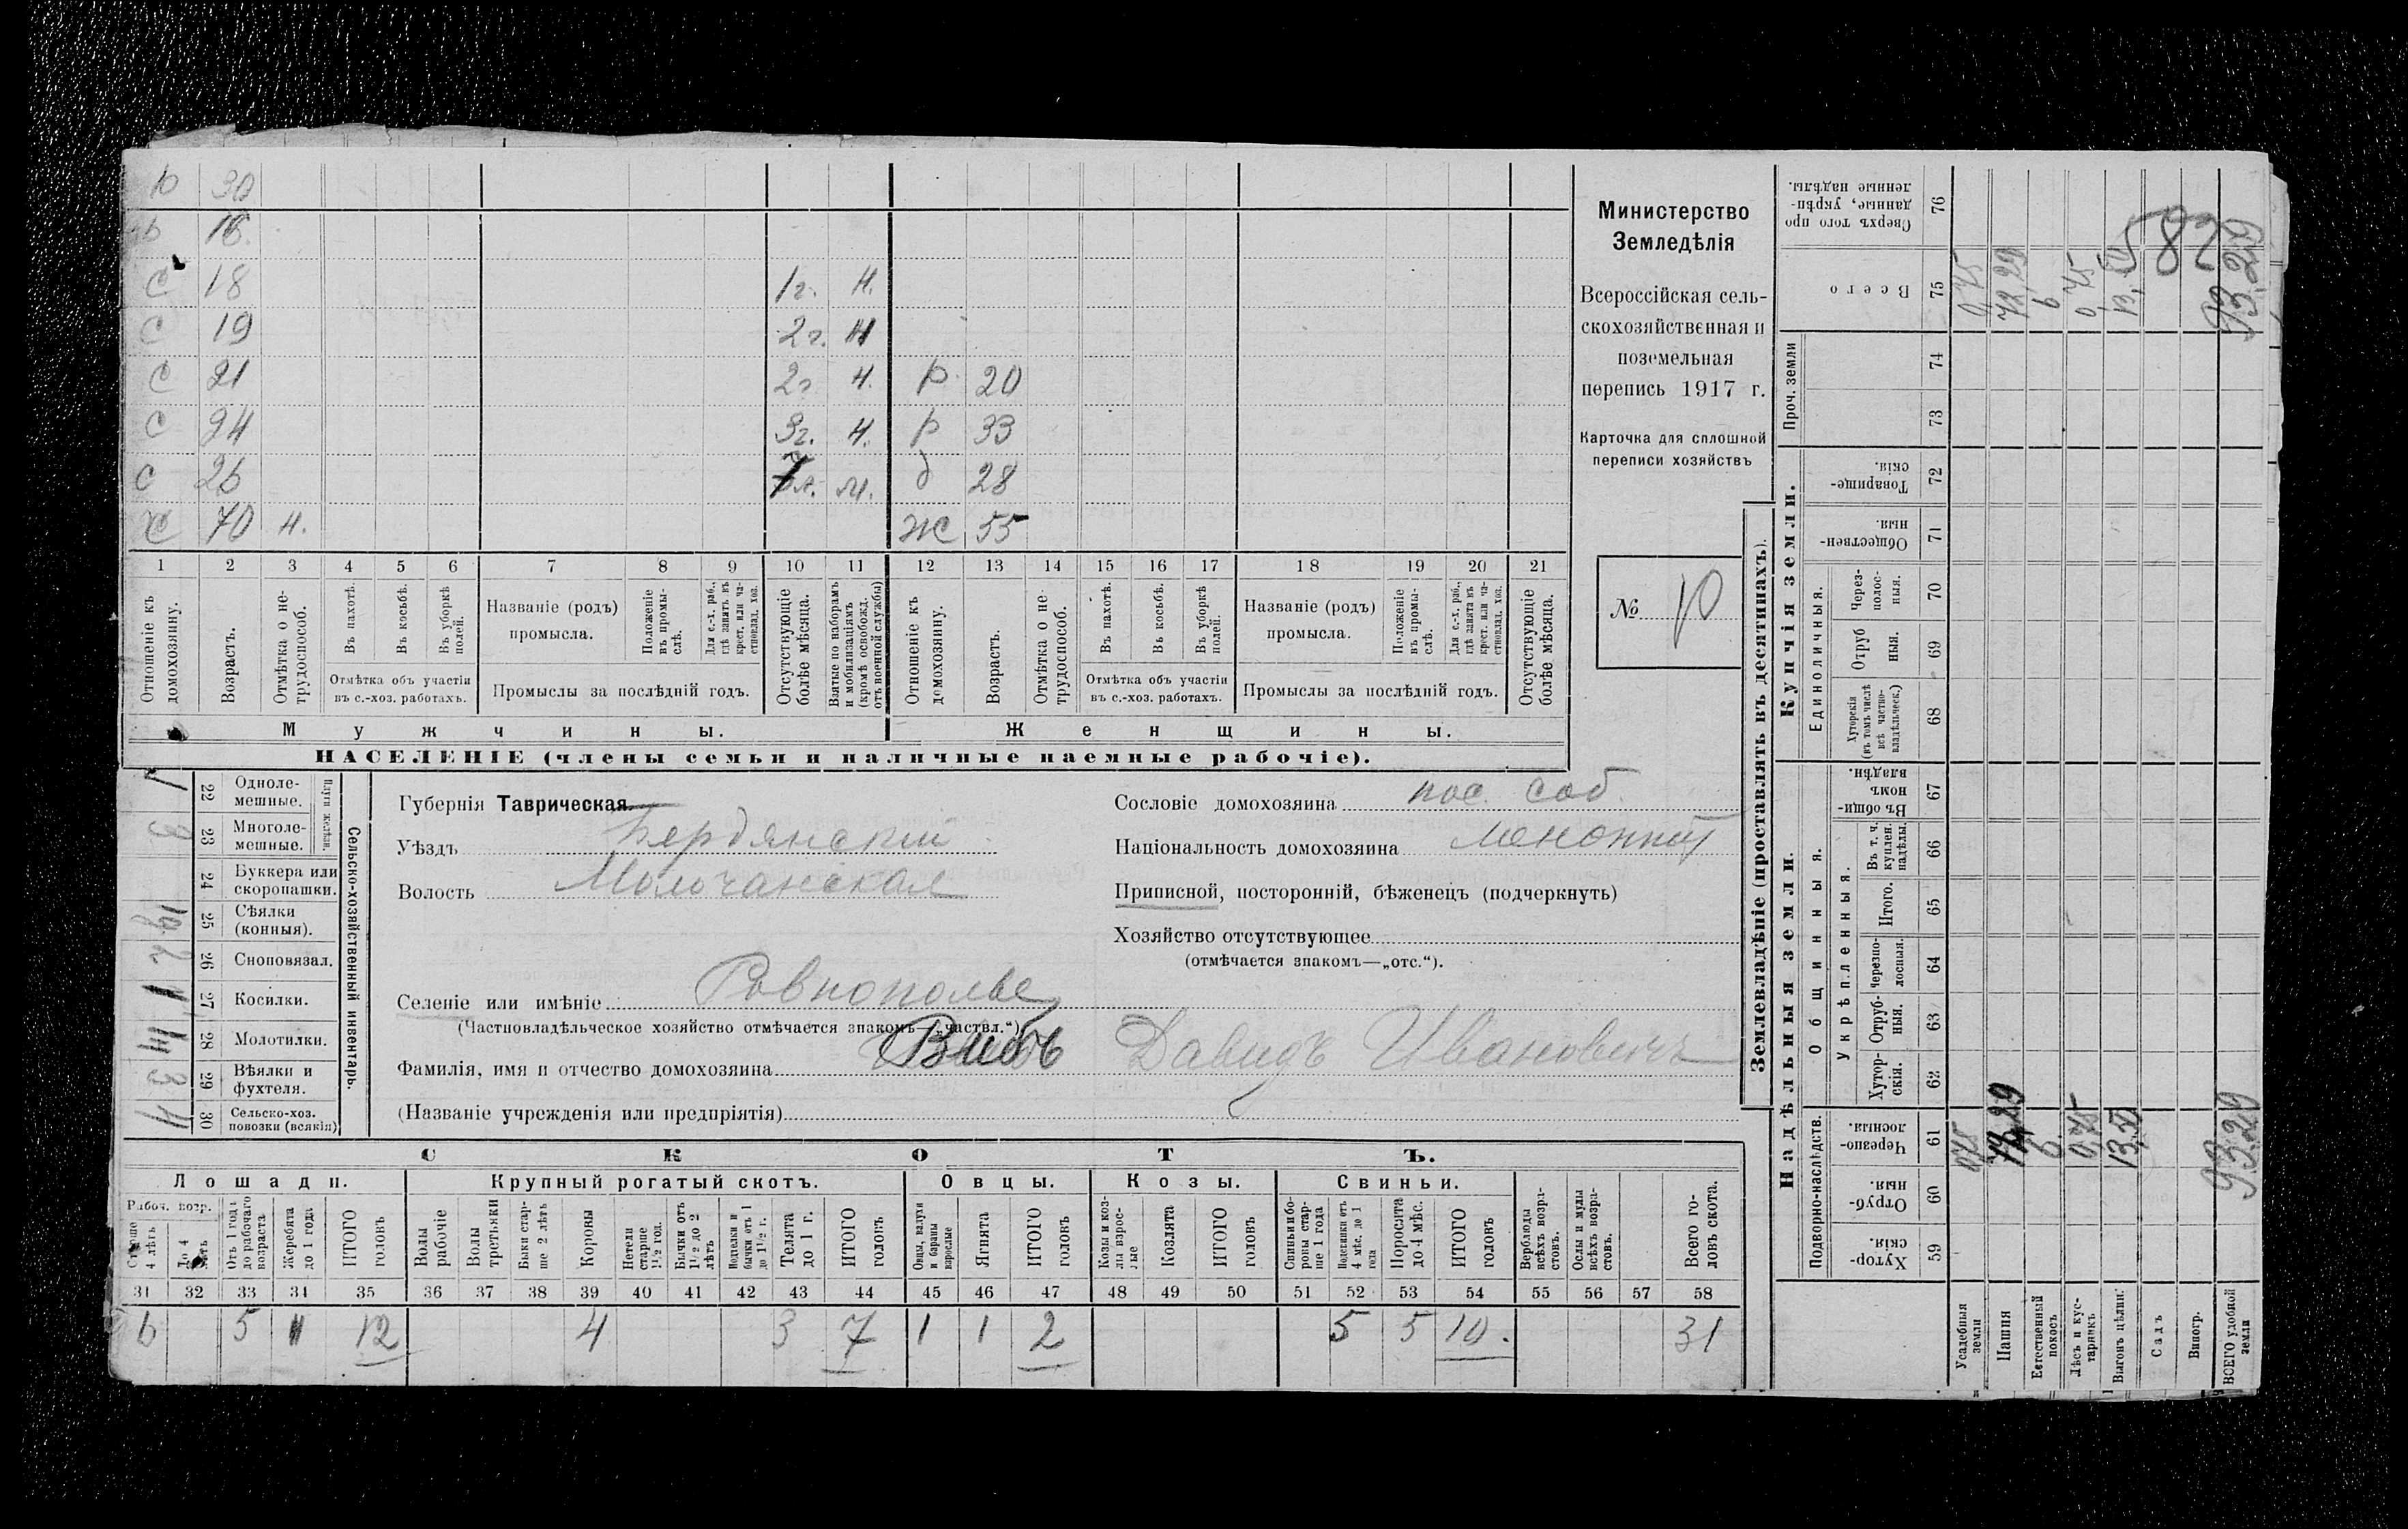 Министерство
Земледѣлія
Всероссійская сель-
скохозяйственная и
поземельная
перепись 1917 г.
Карточка для сплошной
переписи хозяйствъ
№ 10
30
18
С 18 1г. н.
С 19 2г. н
С 21 2г. н. р 20
С 24 3г. н. р 33
С 26 м. д 28
Х 70 н. Ж 55
1 2 3 4 5 6 7 8 9 10 11 12 13 14 15 16 17 18 19 20 21
Отношеніе къ домохозяину.
Возрастъ.
Отмѣтка о не-трудоспособ.
Въ пахотѣ.
Въ косьбѣ.
Въ уборкѣ полей.
Отмѣтка объ участіи въ с.-хоз. работахъ.
Названіе (родъ) промысла.
Положеніе въ промы-слѣ.
Для с.-х. раб., гдѣ занятъ въ крест. или ча-стновлад. хоз.
Промыслы за послѣдній годъ.
Отсутствующіе болѣе мѣсяца.
Взятые по наборамъ и мобилизаціямъ (кромѣ освобожд. отъ военной службы)
Отношеніе къ домохозяину.
Возрастъ.
Отмѣтка о не трудоспособ.
Въ пахотѣ.
Въ косьбѣ.
Въ уборкѣ полей.
Отмѣтка объ участіи въ с.-хоз. работахъ.
Названіе (родъ) промысла.
Положеніе въ промы-слѣ.
Для с.-х. раб., гдѣ занята въ крест. или ча-стновлад. хоз.
Промыслы за послѣдній годъ.
Отсутствующіе болѣе мѣсяца.
Мужчины. Женщины.
НАСЕЛЕНІЕ (члены семьи и наличные наемные рабочіе).
Сельско-хозяйственный инвентарь.
Плуги желѣзн.
22 Одноле-мешные. 1
23 Многоле-мешные.
24 Буккера или скоропашки.
25 Сѣялки (конныя).
26 Сноповязал. 2
27 Косилки. 1
28 Молотилки.
29 Вѣялки и фухтеля. 3
30 Сельско-хоз. повозки (всякія) 4
Губернія Таврическая.
Уѣздъ Бердянскій
Волость Молочанская
Сословіе домохозяина пос. соб.
Національность домохозяина Менонит
Приписной, посторонній, бѣженецъ (подчеркнуть)
Хозяйство отсутствующее
(отмѣчается знакомъ—„отс.“).
Селеніе или имѣніе Ровнополье
(Частновладѣльческое хозяйство отмѣчается знакомъ—„частвл.“)
Фамилія, имя и отчество домохозяина Вибъ Давидъ Ивановичъ
(Названіе учрежденія или предпріятія)
СКОТЪ.
Лошади. Крупный рогатый скотъ. Овцы. Козы. Свиньи.
Рабоч. возр.
Старше 4 лѣтъ
До 4 лѣтъ
Отъ 1 года до рабочаго возраста
Жеребята до 1 года
ИТОГО головъ
Волы рабочіе
Волы третьяки
Быки стар-ше 2 лѣтъ
Коровы
Нетели старше 1½ год.
Бычки отъ 1½ до 2 лѣтъ
Подтелки и бычки отъ 1 до 1½ г.
Телята до 1 г.
ИТОГО головъ
Овцы, валухи и бараны взрослые
Ягнята
ИТОГО головъ
Козы и коз-лы взрос-лые
Козлята
ИТОГО головъ
Свиньи и бо-ровы стар-ше 1 года
Подсвинки отъ 4 мѣс. до 1 года
Поросята до 4 мѣс.
ИТОГО головъ
Верблюды всѣхъ возра-стовъ.
Ослы и мулы всѣхъ возра-стовъ.
Всего го-ловъ скота.
31 32 33 34 35 36 37 38 39 40 41 42 43 44 45 46 47 48 49 50 51 52 53 54 55 56 57 58
6 5 1 12 4 3 7 1 1 2 5 5 10. 31
Землевладѣніе (проставлять въ десятинахъ).
Надѣльныя земли. Купчія земли.
Подворно-наслѣдств. Общинныя. Укрѣпленныя. Единоличныя. Проч. земли
59 Хутор-скія.
60 Отруб-ныя.
61 Черезпо-лосныя.
62 Хутор-скія.
63 Отруб-ныя.
64 Черезпо-лосныя.
65 Итого.
66 Въ т. ч. куплен. надѣлы.
67 Въ общи-номъ владѣн.
68 Хуторскія (въ томъ числѣ всѣ частно-владѣльческ.)
69 Отруб ныя.
70 Через-полос-ныя.
71 Обществен-ныя.
72 Товарище-скія.
73
74
75 Всего
76 Сверхъ того про данные, укрѣп-ленные надѣлы.
Усадебная земли 0,75 0,75
Пашня 72,29 72,29
Естественный покосъ 6. 6
Лѣсъ и кус-тарникъ 0,75 0,75
Выгонъ цѣлин. 13,50 13,50
Садъ
Виногр.
ВСЕГО удобной земли 93.29 93.29
582